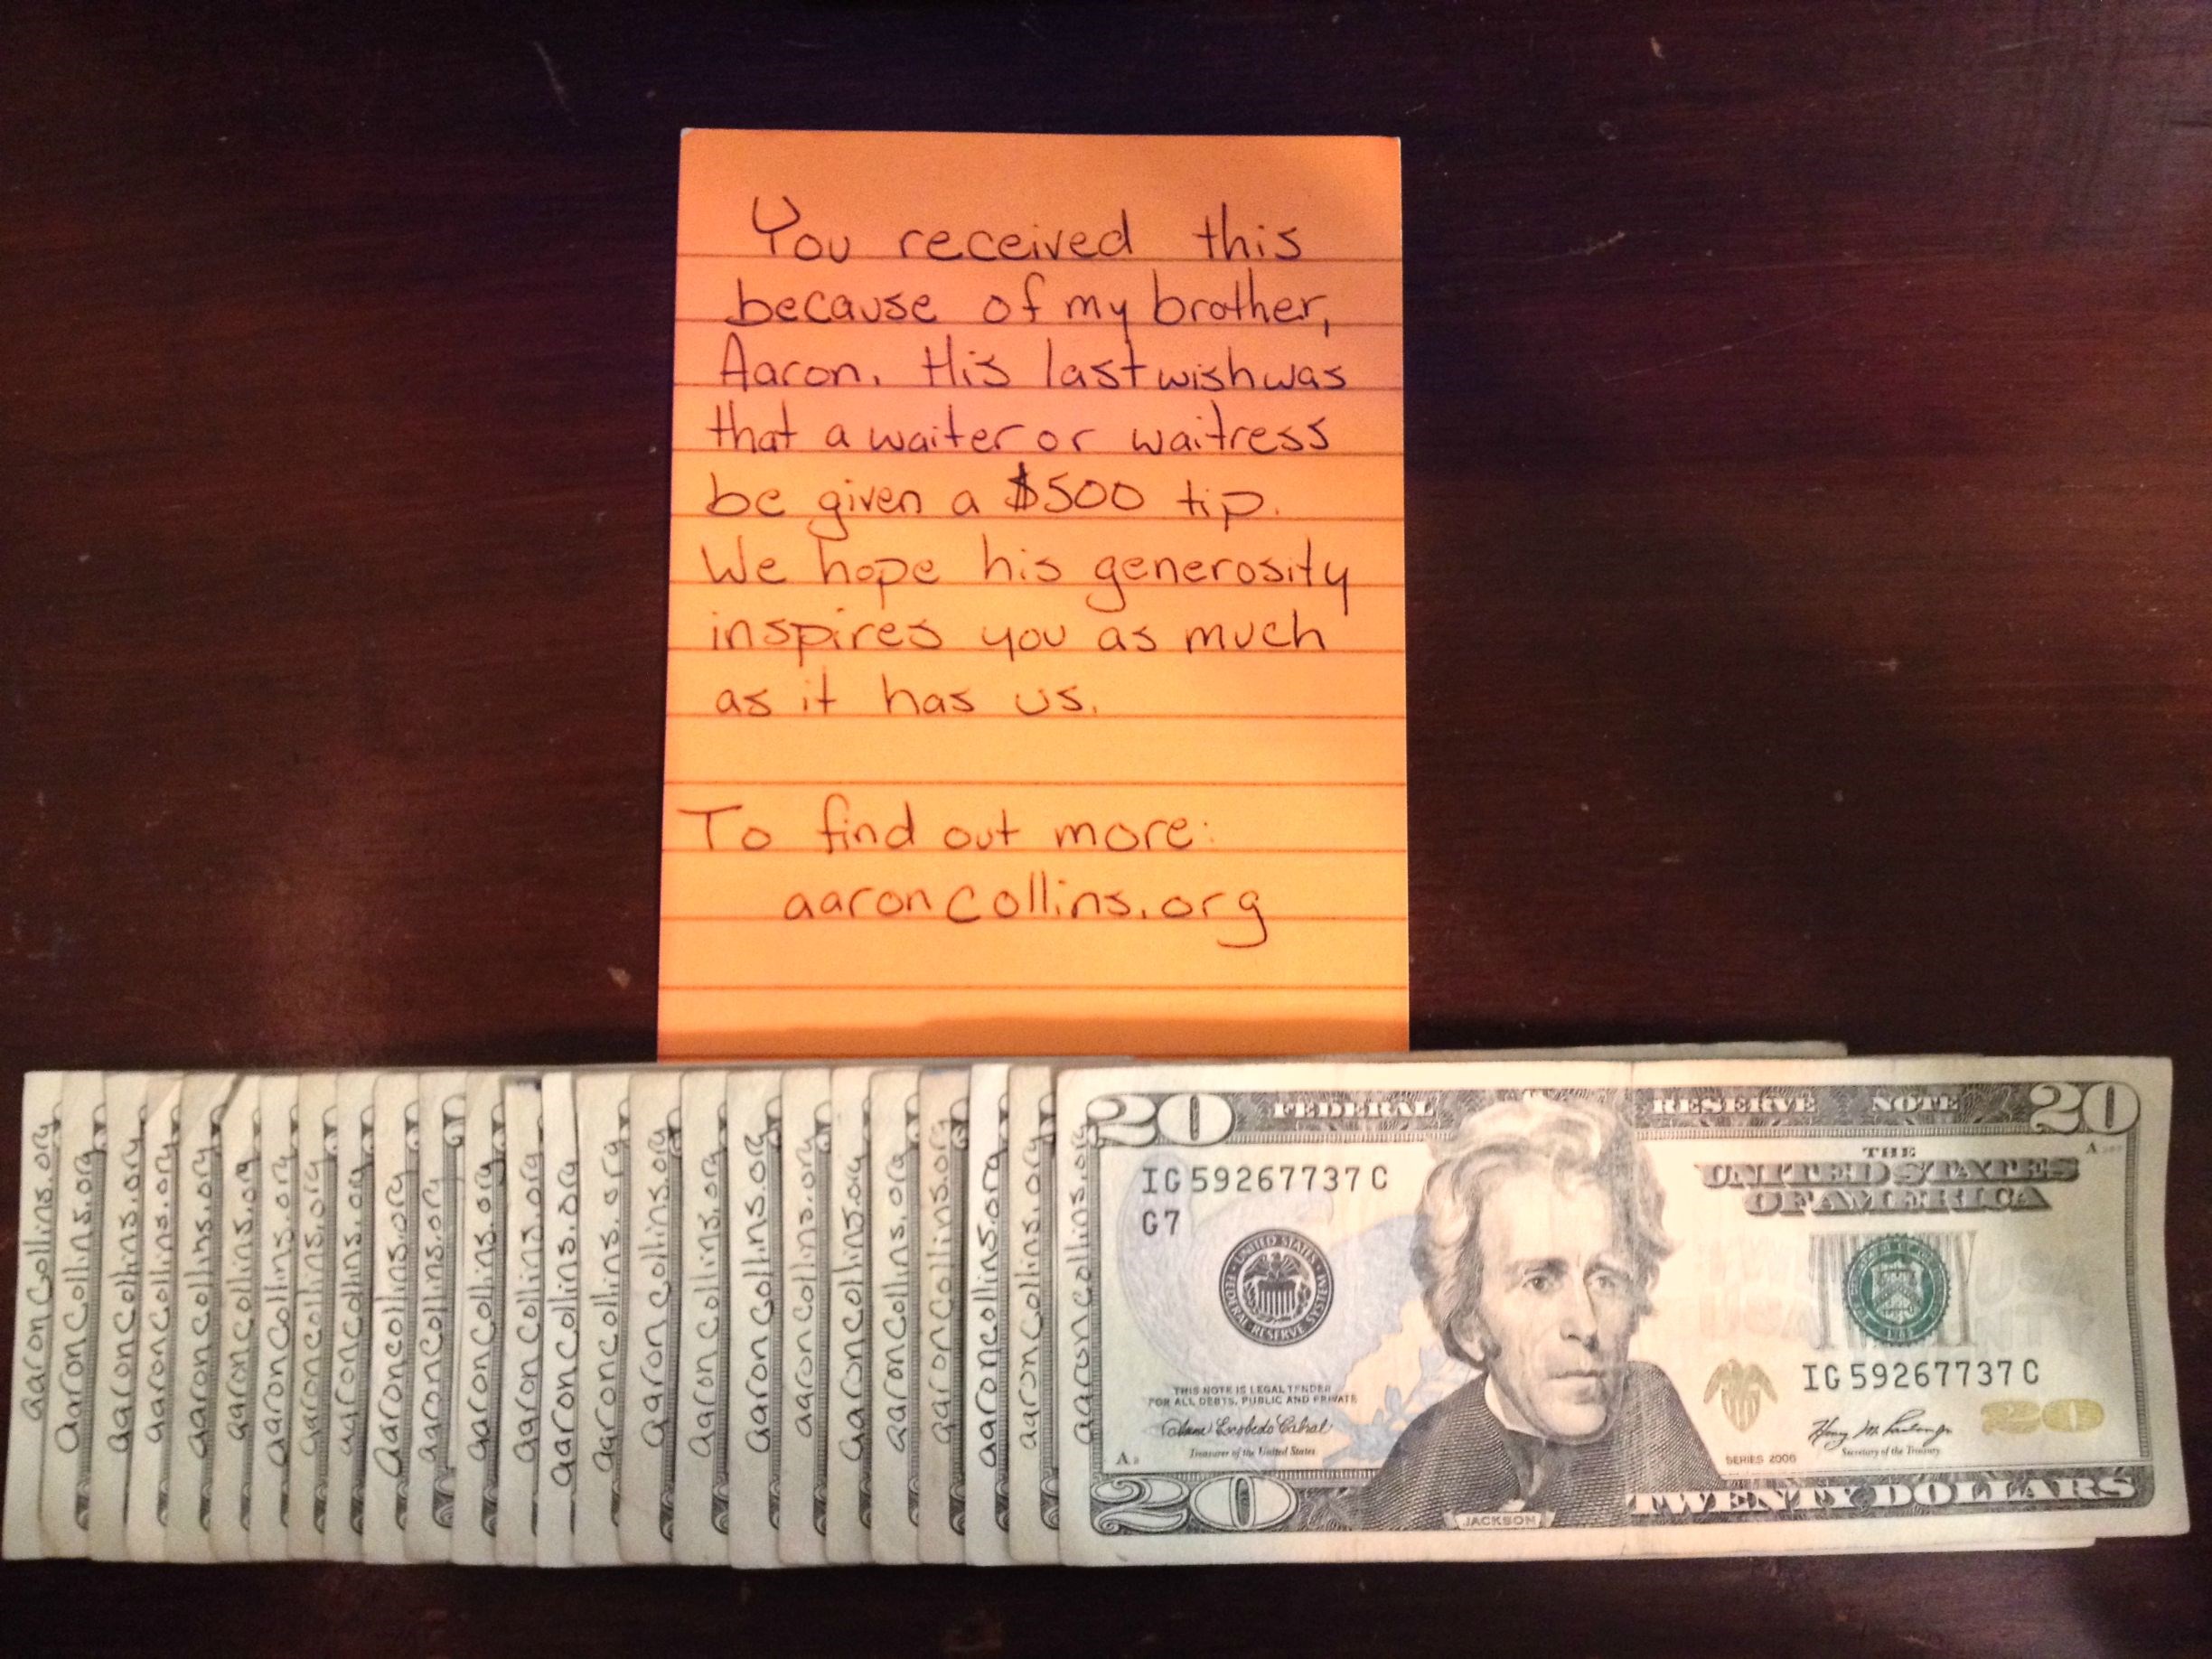 You received this
because of my brother,
Aaron. His last wish was
that a waiter or waitress
be given a $500 tip.
We hope his generosity
inspires you as much
as it has us.
To find out more:
aaroncollins.org
aaroncollins.org
aaroncollins.org
aaroncollins.org
aaroncollins.org
aaroncollins.org
aaroncollins.org
aaroncollins.org
aaroncollins.org
aaroncollins.org
aaroncollins.org
aaroncollins.org
aaroncollins.org
aaroncollins.org
aaroncollins.org
aaroncollins.org
aaroncollins.org
aaroncollins.org
aaroncollins.org
aaroncollins.org
aaroncollins.org
aaroncollins.org
aaroncollins.org
aaroncollins.org
aaroncollins.org
aaroncollins.org
aaroncollins.org
20 FEDERAL RESERVE NOTE 20
THE
UNITED STATES
OF AMERICA
IG 59267737 C
G7
UNITED STATES FEDERAL RESERVE SYSTEM
THIS NOTE IS LEGAL TENDER
FOR ALL DEBTS, PUBLIC AND PRIVATE
Anna Escobedo Cabral
Treasurer of the United States
IG 59267737 C
20
Secretary of the Treasury
SERIES 2006
20 JACKSON TWENTY DOLLARS